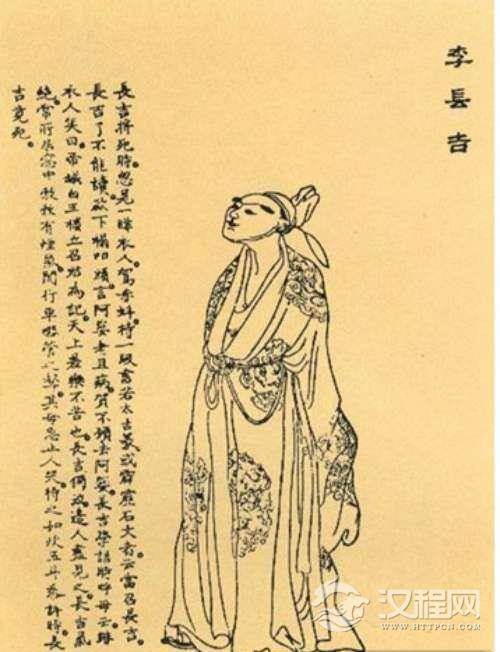 李長吉
長吉將死時忽見一緋衣人駕赤虯持一版書若太古篆或霹靂石文者云當召長吉
長吉了不能讀欻下榻叩頭言阿㜷老且病賀不願去阿㜷長吉學語時呼母云緋
衣人笑曰帝成白玉樓立召君為記天上差樂不苦也長吉獨泣邊人盡見之長吉氣
絕常所居窗中勃勃有煙氣聞行車嘒管之聲其母急止人哭待之如炊五斗黍許時長
吉竟死
汉程网
HTTPCN.COM